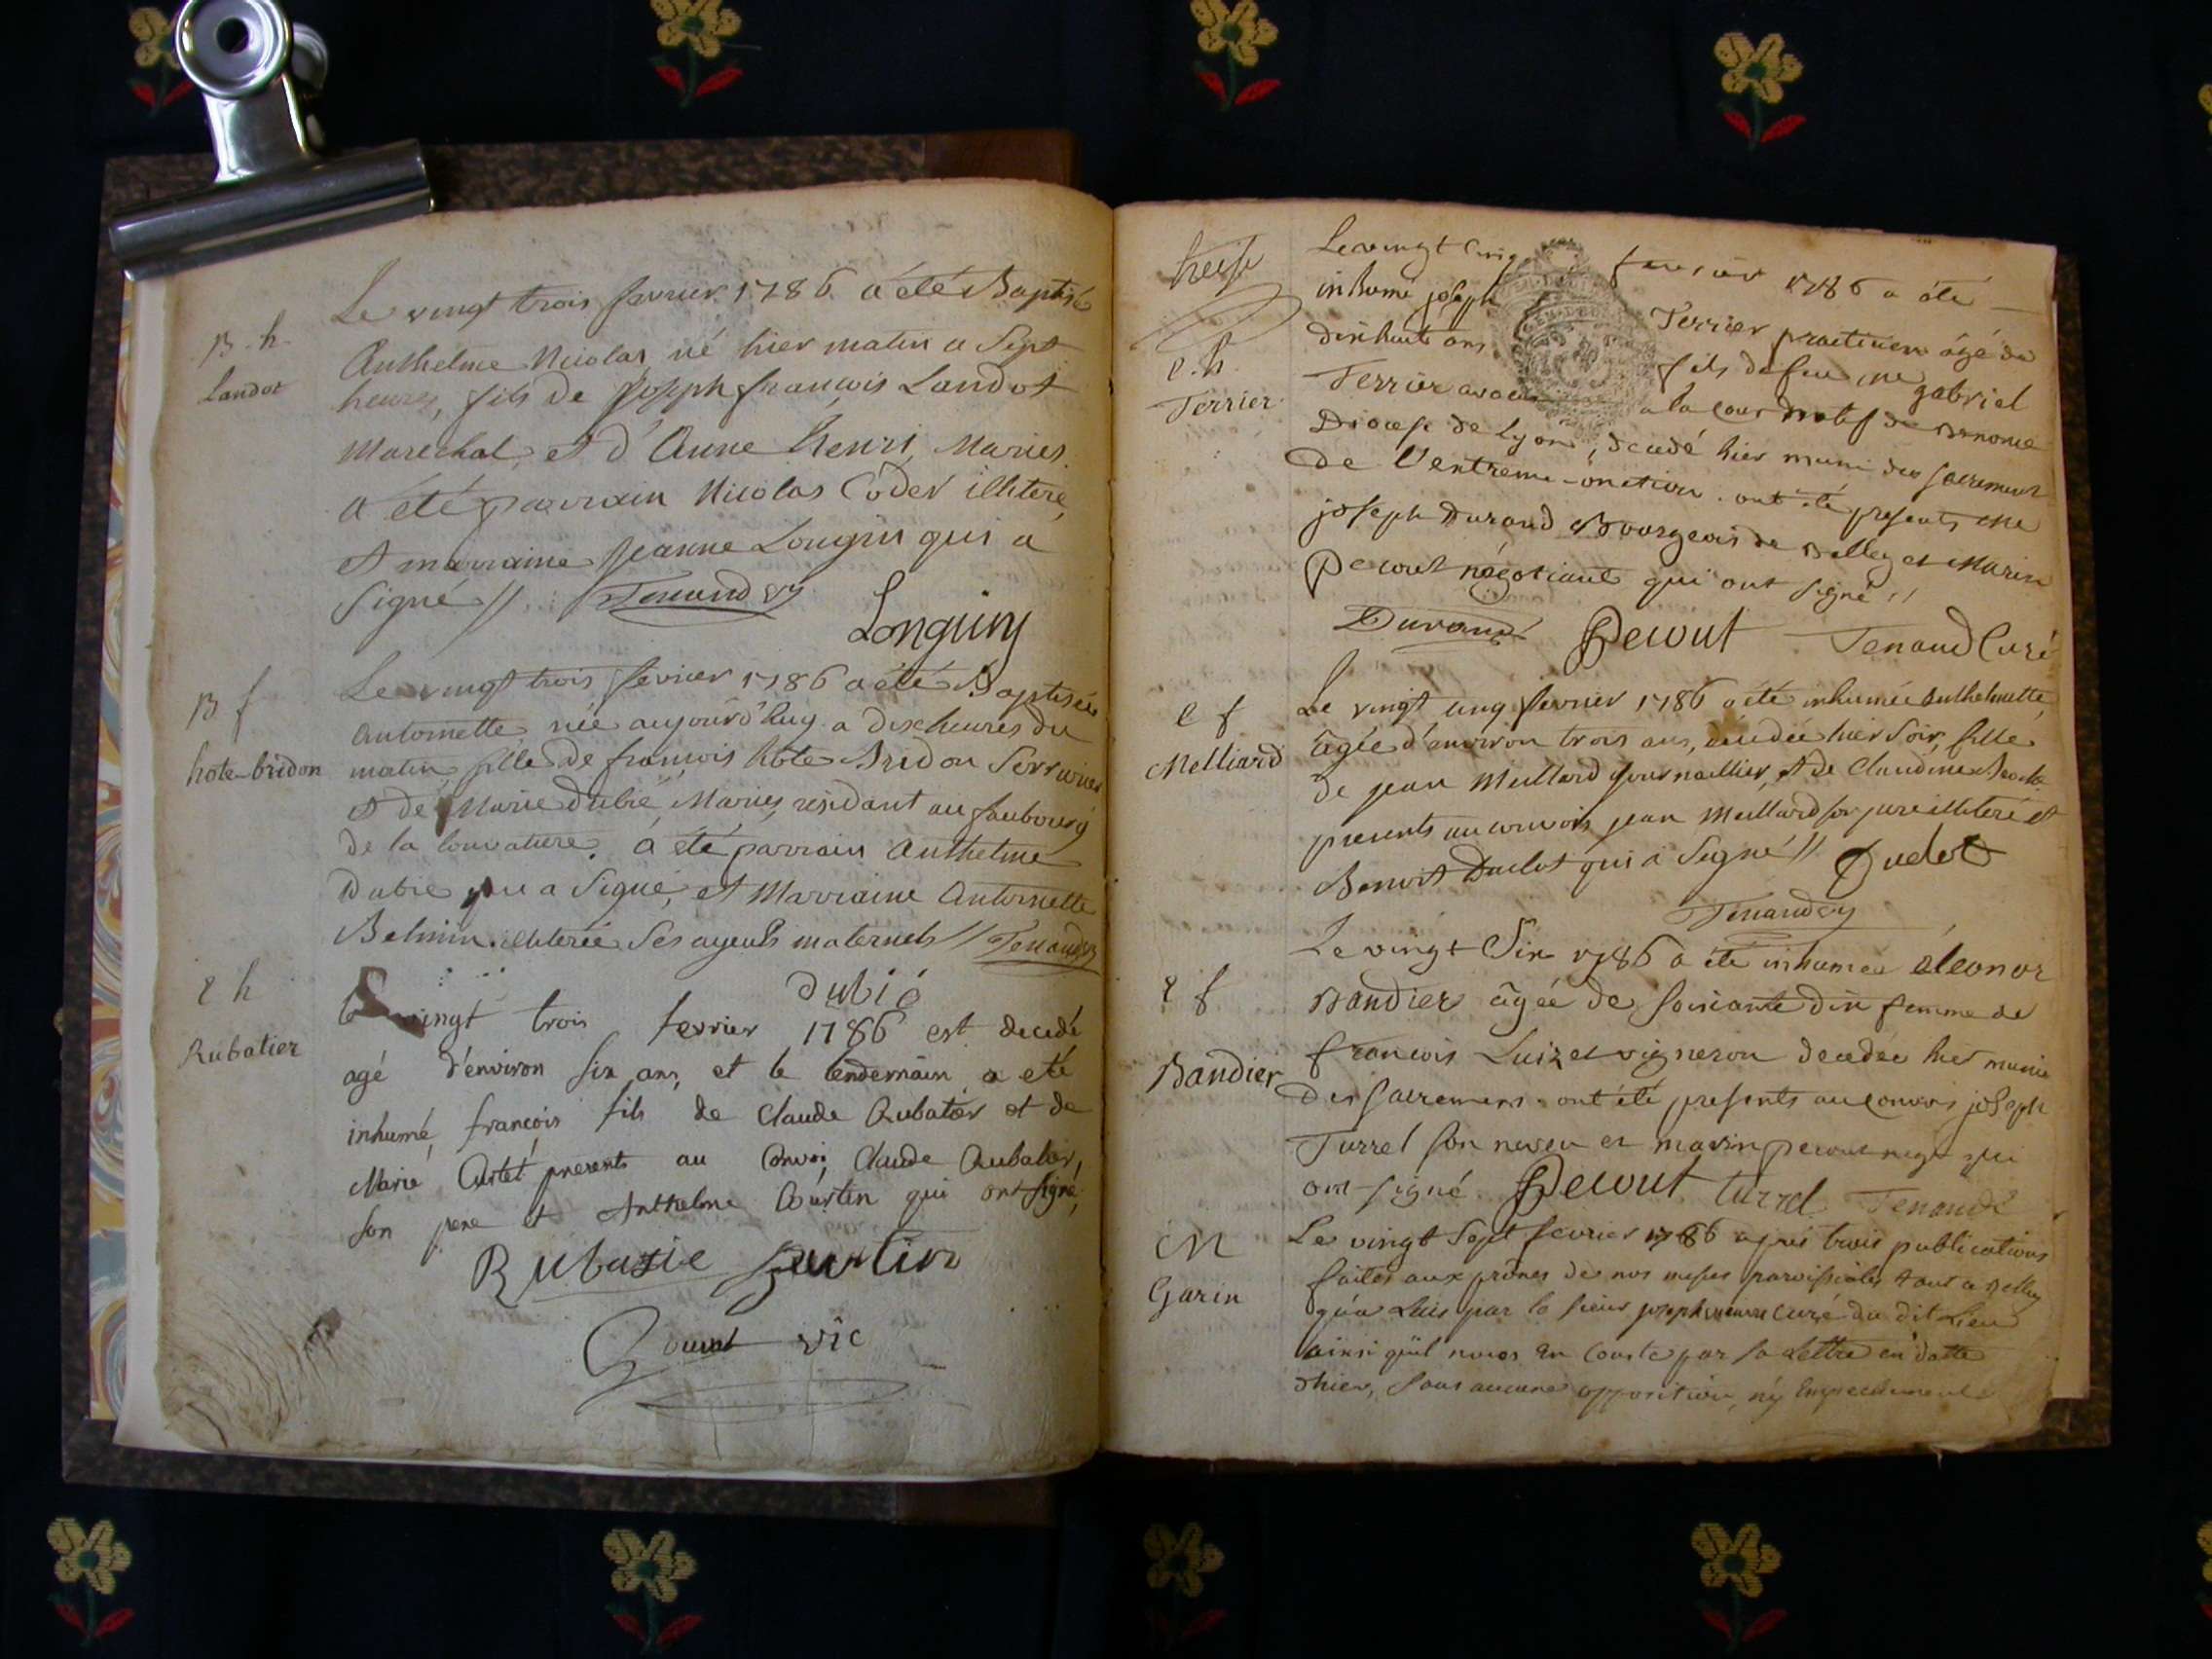 B. h.
Landot
Le vingt trois fevrier 1786 a été Baptisé
Anthelme Nicolas né hier matin a Sept
heures, fils de Joseph françois Landot
Marechal, et d'Anne henri, Mariés.
a été parrain Nicolas Coder illiteré,
et marraine Jeanne Longin qui a
Signé // Tenand
Longuiny
B f
hote-bridon
Le vingt trois fevrier 1786 a été Baptisée
Antoinette née aujourd'huy a dix heures du
matin fille de françois hôte Bridon Serrurier
et de Marie Dubié, Mariés, residant au faubourg
de la louvatiere. a été parrain Anthelme
Dubié qui a Signé, et Marraine Antoinette
Belmin illiterée Ses ayeuls maternels // Tenand
Dubié
e h
Rubatier
le vingt trois fevrier 1786 est decedé
agé d'énviron six ans, et le lendemain a eté
inhumé françois fils de Claude Rubatier et de
Marie Curtet présents au Convoi Claude Rubatier,
son pere et Anthelme Courtin qui ont signé,
Rubatie
vic
treise
e. h.
Terrier
Le vingt Cinq fevrier 1786 a été
inhumé joseph Terrier praticien âgé de
dixhuit ans fils de feu me gabriel
Terrier avocat a la Cour natif de
Diocese de Lyon, decedé hier muni des sacremens
de l'extreme-onction. ont été presents me
joseph Durand Bourgeois de Belley et Marin
Pecout négotiant qui ont signé //
Durand Pecout Tenand Curé
e f
Melliard
Le vingt cinq fevrier 1786 a été inhumée Anthelmette,
âgée d'environ trois ans, decedée hier soir, fille
de jean Meilliard fournaillier, et de Claudine
presents au convois jean Meilliard son pere illiteré et
Benoit Duclot qui a Signé // Duclot
Tenand
e f
Bandier
Le vingt Six 1786 a été inhumée éleonor
Bandier âgée de soixante dix femme de
françois Luizet vigneron decedée hier munie
des sacremens. ont été presents au Convois joseph
Turrel son neveu et marin pecout negt qui
ont signé. Pecout turrel Tenand
M
Garin
Le vingt Sept fevrier 1786 apres trois publications
faites aux prônes de nos messes paroissiales tant a Belley
qu'a Luis par le sieur joseph Curé du dit Lieu
ainsi qu'il nous en Conste par sa Lettre en datte
d'hier, sans aucune opposition, ny Empechement